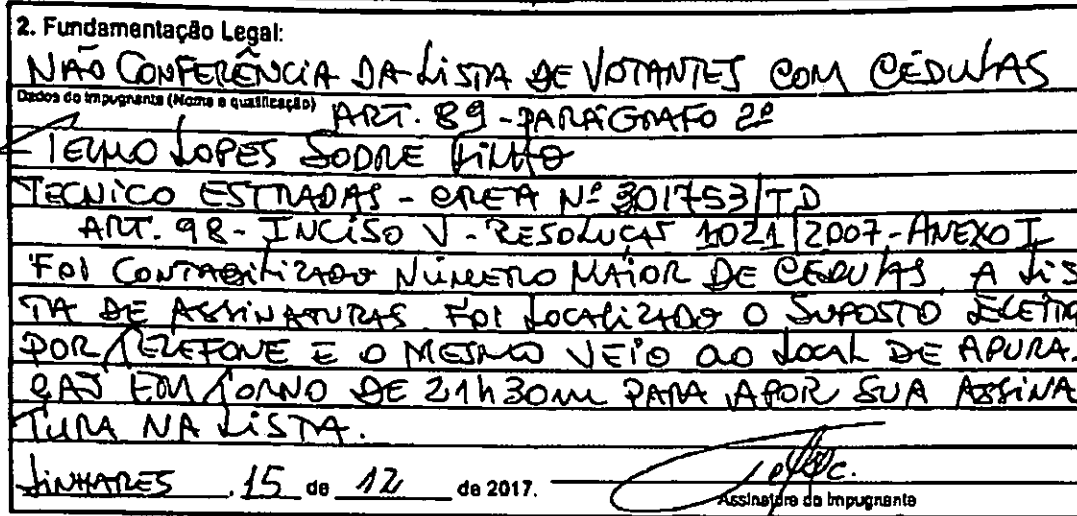 2. Fundamentação Legal:
NÃO CONFERÊNCIA DA LISTA DE VOTANTES COM CÉDULAS
Dados do Impugnante (Nome e qualificação) ART. 89 - PARÁGRAFO 2º
TELMO LOPES SODRE FILHO
TECNICO ESTRADAS - CREA Nº 301753/TD
ART. 98 - INCISO V - RESOLUÇAS 1021/2007 - ANEXO I
FOI CONTABILIZADO NÚMERO MAIOR DE CEDULAS A LIS
TA DE ASSINATURAS. FOI LOCALIZADO O SUPOSTO ELEITO
POR TELEFONE E O MESMO VEIO AO LOCAL DE APURA.
ÇAS EM TORNO DE 21h30m PARA APOR SUA ASSINA
TURA NA LISTA.
LINHARES, 15 de 12 de 2017.
Assinatura do Impugnante